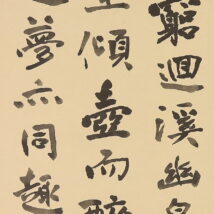 窮迴溪幽泉
傾壺而醉
夢亦同趣